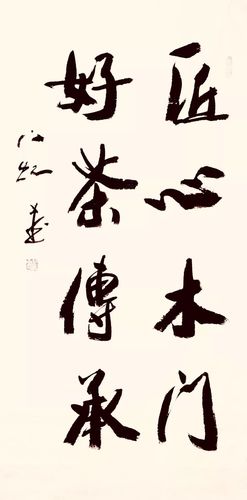 匠心木门
好茶傳承